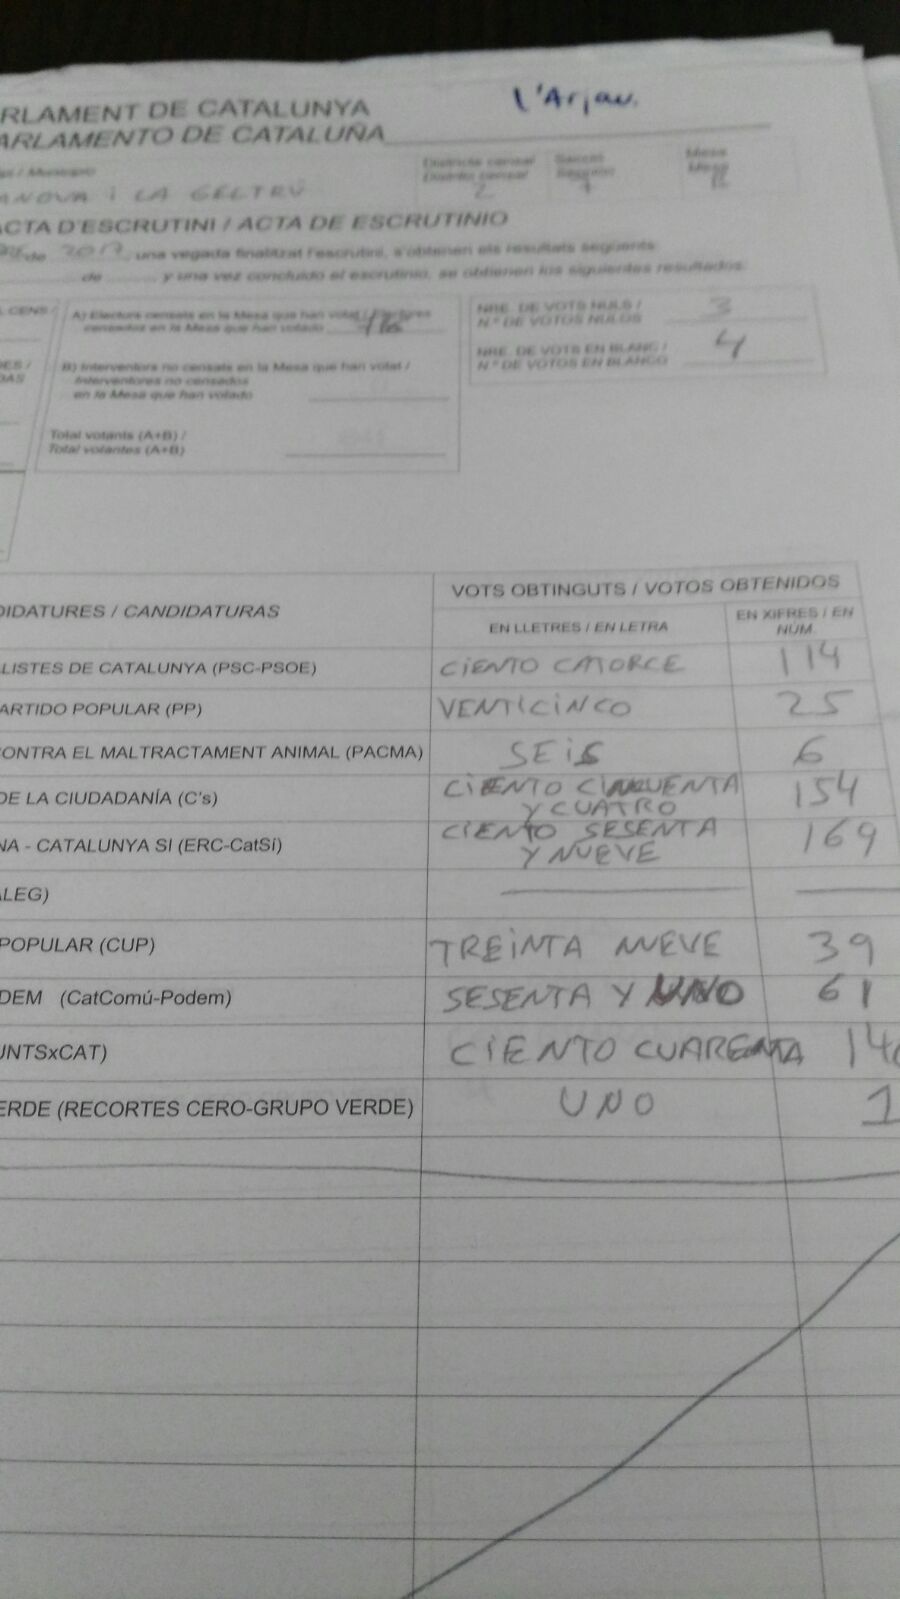 RLAMENT DE CATALUNYA
ARLAMENTO DE CATALUÑA
l'Arjau.
/ Municipio
ANOVA i LA GELTRÚ
Districte censal
Distrito censal
2
Secció
Sección
Mesa
Mesa
B
ACTA D'ESCRUTINI / ACTA DE ESCRUTINIO
de 2017, una vegada finalitzat l'escrutini, s'obtenen els resultats següents:
de ......... y una vez concluido el escrutinio, se obtienen los siguientes resultados:
CENS /
A) Electors censats en la Mesa que han votat / Electores
censados en la Mesa que han votado
B) Interventors no censats en la Mesa que han votat /
Interventores no censados
en la Mesa que han votado
Total votants (A+B) /
Total votantes (A+B)
NRE. DE VOTS NULS /
N.º DE VOTOS NULOS 3
NRE. DE VOTS EN BLANC /
N.º DE VOTOS EN BLANCO 4
DIDATURES / CANDIDATURAS
VOTS OBTINGUTS / VOTOS OBTENIDOS
EN LLETRES / EN LETRA
EN XIFRES / EN
NÚM.
LISTES DE CATALUNYA (PSC-PSOE) CIENTO CATORCE 114
ARTIDO POPULAR (PP) VENTICINCO 25
CONTRA EL MALTRACTAMENT ANIMAL (PACMA) SEIS 6
DE LA CIUDADANÍA (C's) CIENTO CINCUENTA
Y CUATRO 154
NA - CATALUNYA SI (ERC-CatSí) CIENTO SESENTA
Y NUEVE 169
ALEG)
POPULAR (CUP) TREINTA NUEVE 39
DEM (CatComú-Podem) SESENTA Y UNO 61
UNTSxCAT) CIENTO CUARENTA 140
ERDE (RECORTES CERO-GRUPO VERDE) UNO 1